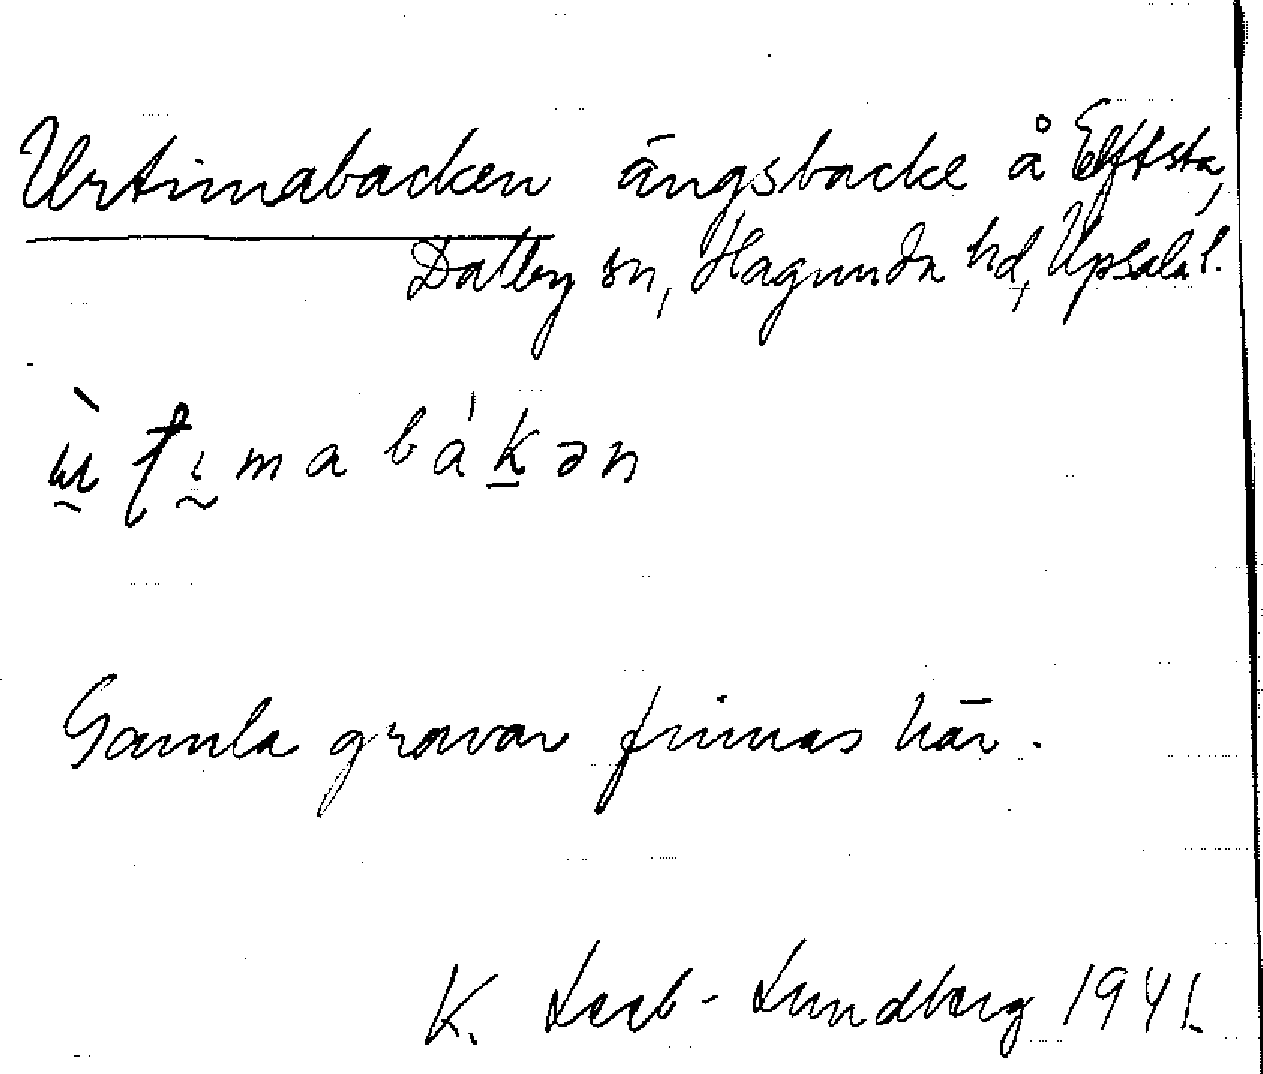 Urtimabacken ängsbacke å Elfsta,
Dalby sn, Hagunda hd, Upsala l.
Gamla gravar finnas här.
K. Leeb-Lundberg 1941.